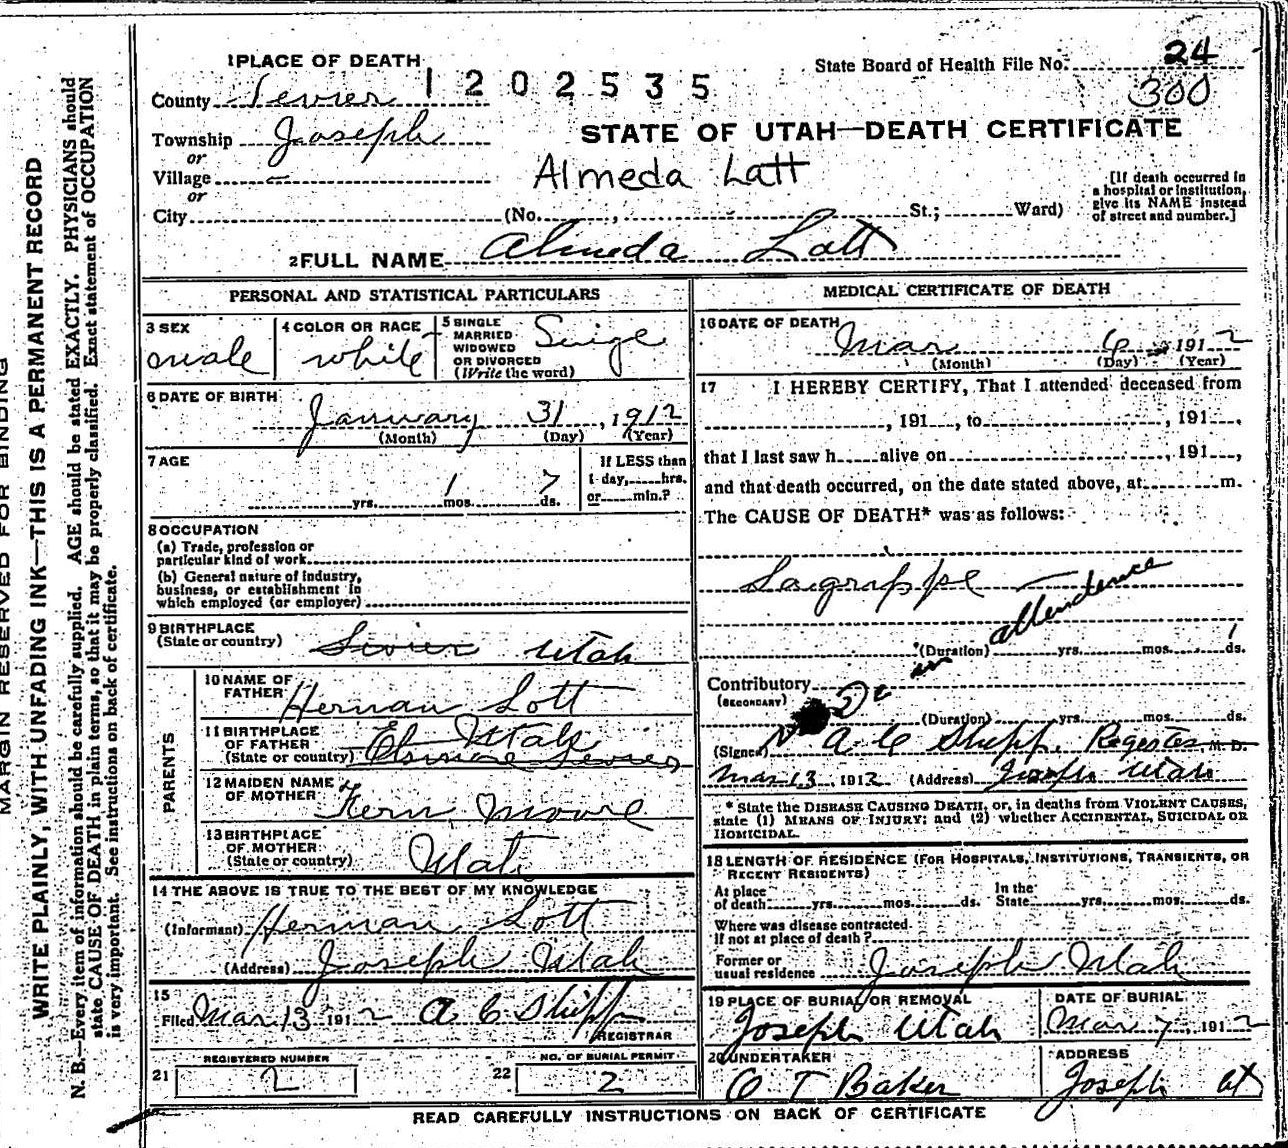 MARGIN RESERVED FOR BINDING
WRITE PLAINLY, WITH UNFADING INK—THIS IS A PERMANENT RECORD
N. B.—Every item of information should be carefully supplied. AGE should be stated EXACTLY. PHYSICIANS should
state CAUSE OF DEATH in plain terms, so that it may be properly classified. Exact statement of OCCUPATION
is very important. See instructions on back of certificate.
1 PLACE OF DEATH
1202535
State Board of Health File No. 24
300
County Sevier
Township Joseph
or
Village
or
STATE OF UTAH—DEATH CERTIFICATE
Almeda Latt
[If death occurred in
a hospital or institution,
give its NAME instead
of street and number.]
City (No. , St.; Ward)
2 FULL NAME Almeda Lott
PERSONAL AND STATISTICAL PARTICULARS
3 SEX male
4 COLOR OR RACE white
5 SINGLE
MARRIED
WIDOWED
OR DIVORCED
(Write the word)
6 DATE OF BIRTH
January 31, 1912
(Month) (Day) (Year)
7 AGE
yrs. 1 mos. 7 ds.
If LESS than
1 day, hrs.
or min.?
8 OCCUPATION
(a) Trade, profession or
particular kind of work
(b) General nature of industry,
business, or establishment in
which employed (or employer)
9 BIRTHPLACE
(State or country) Sevier Utah
PARENTS
10 NAME OF
FATHER Herman Lott
11 BIRTHPLACE
OF FATHER Utah
(State or country) Elsinore Sevier
12 MAIDEN NAME
OF MOTHER Fern Moore
13 BIRTHPLACE
OF MOTHER
(State or country) Utah
14 THE ABOVE IS TRUE TO THE BEST OF MY KNOWLEDGE
(Informant) Herman Lott
(Address) Joseph Utah
15
Filed Mar 13 1912 A C Shipp
REGISTRAR
REGISTERED NUMBER
21 2
NO. OF BURIAL PERMIT
22 2
MEDICAL CERTIFICATE OF DEATH
16 DATE OF DEATH
Mar 6 1912
(Month) (Day) (Year)
17 I HEREBY CERTIFY, That I attended deceased from
, 191 , to , 191 ,
that I last saw h alive on , 191 ,
and that death occurred, on the date stated above, at m.
The CAUSE OF DEATH* was as follows:
Lagrippe
attendence
(Duration) yrs. mos. 1 ds.
in
Contributory
(SECONDARY)
Dr
(Duration) yrs. mos. ds.
(Signed) A C Shipp, Regester M. D.
Mar 13, 1912 (Address) Joseph Utah
* State the DISEASE CAUSING DEATH, or, in deaths from VIOLENT CAUSES,
state (1) MEANS OF INJURY; and (2) whether ACCIDENTAL, SUICIDAL OR
HOMICIDAL.
18 LENGTH OF RESIDENCE (FOR HOSPITALS, INSTITUTIONS, TRANSIENTS, OR
RECENT RESIDENTS)
At place
of death yrs. mos. ds.
In the
State yrs. mos. ds.
Where was disease contracted
If not at place of death?
Former or
usual residence Joseph Utah
19 PLACE OF BURIAL OR REMOVAL
Joseph Utah
DATE OF BURIAL
Mar 7, 1912
20 UNDERTAKER
O T Baker
ADDRESS
Joseph ut
READ CAREFULLY INSTRUCTIONS ON BACK OF CERTIFICATE